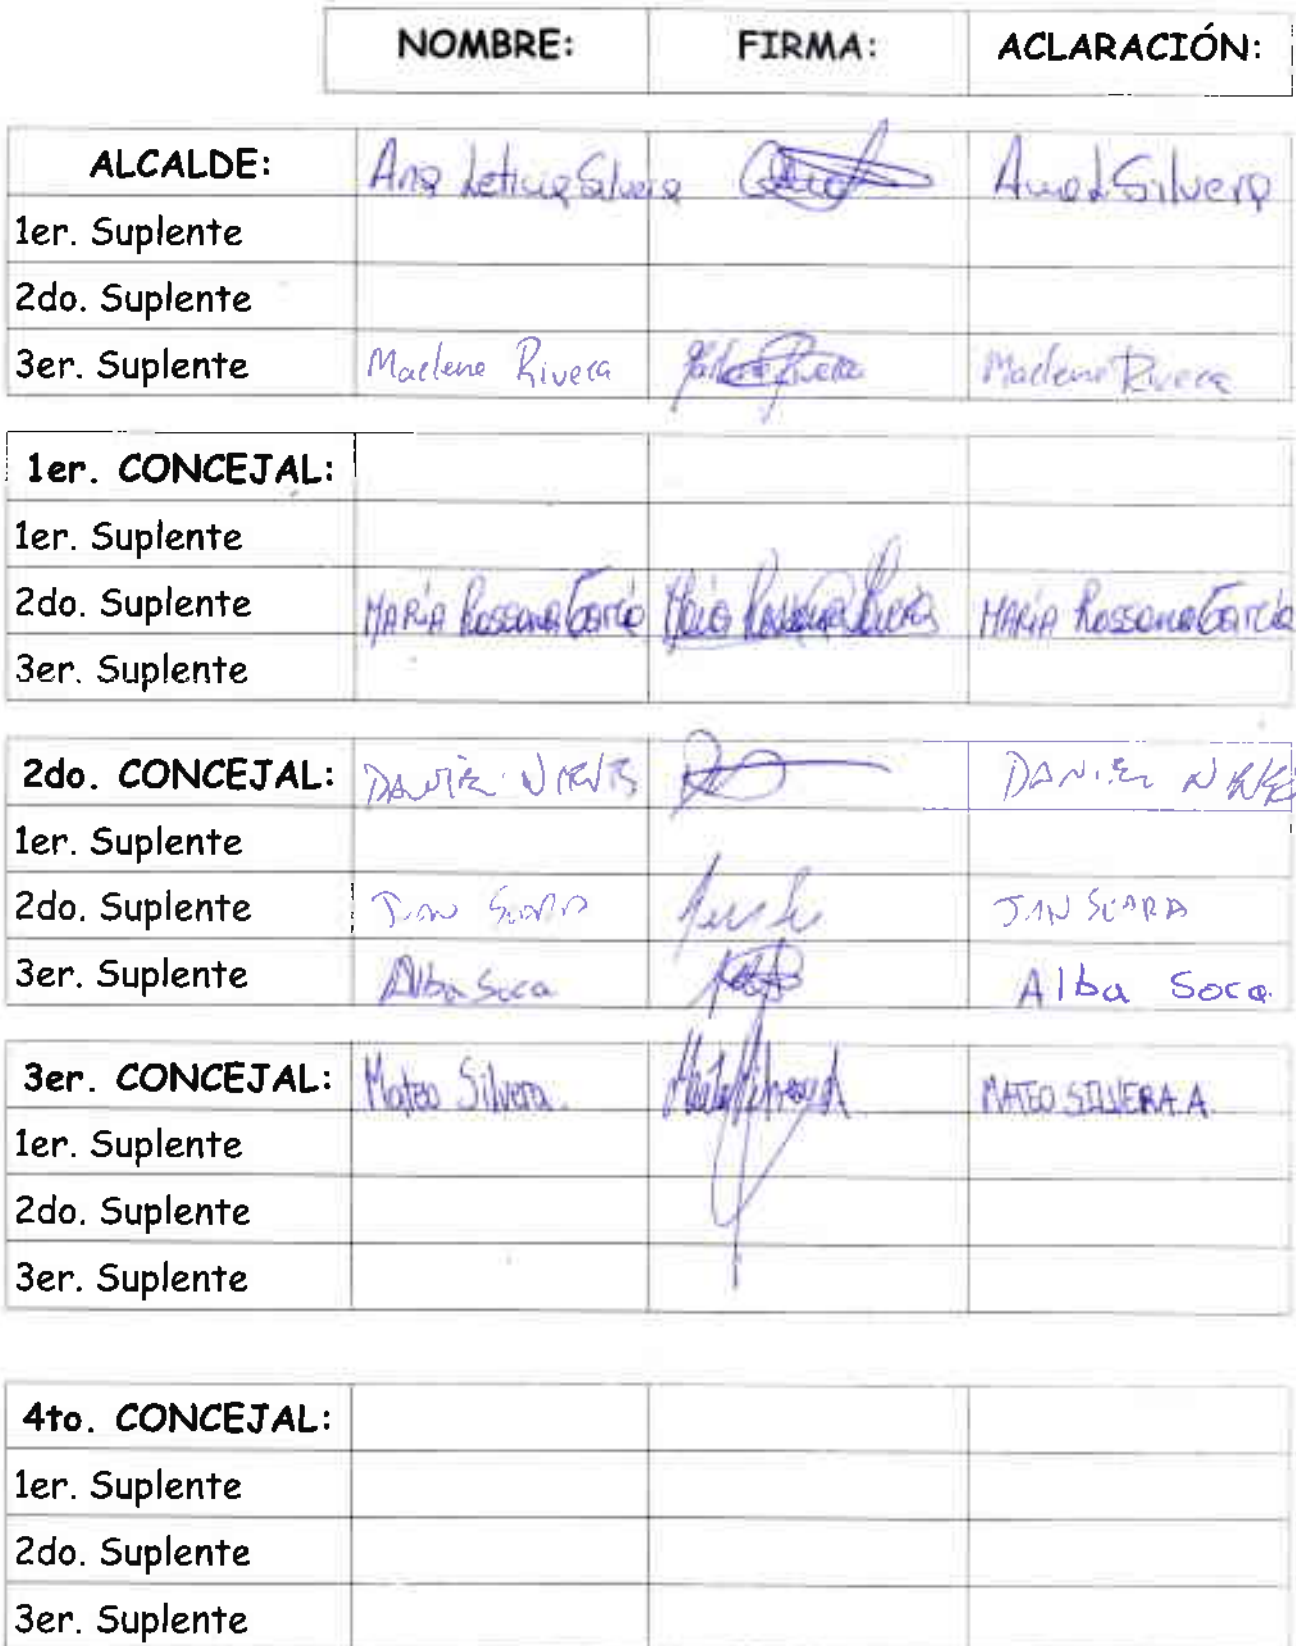 NOMBRE: FIRMA: ACLARACIÓN:
ALCALDE: Ana Leticia Silvera Ana L Silvera
1er. Suplente
2do. Suplente
3er. Suplente Marlene Rivera Marlene Rivera Marlene Rivera
1er. CONCEJAL:
1er. Suplente
2do. Suplente MARÍA Rossana García María Rossana MARÍA Rossana García
3er. Suplente
2do. CONCEJAL: DANIEL DANIEL
1er. Suplente
2do. Suplente
3er. Suplente Alba Soca Alba Soca
3er. CONCEJAL: Mateo Silvera. MATEO SILVERA.A.
1er. Suplente
2do. Suplente
3er. Suplente
4to. CONCEJAL:
1er. Suplente
2do. Suplente
3er. Suplente